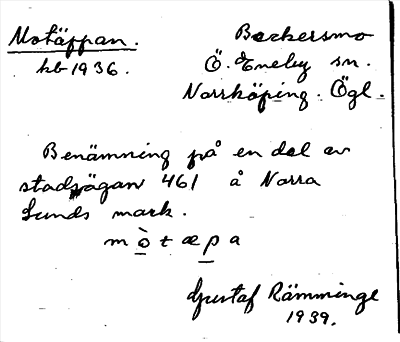 Motäppan.
kb 1936.
Beckersmo
Ö. Eneby sn.
Norrköping. Ögl.
Benämning på en del av
stadsägan 461 å Norra
Lunds mark.
m ò t æ p a
Gustaf Rämminge
1939.